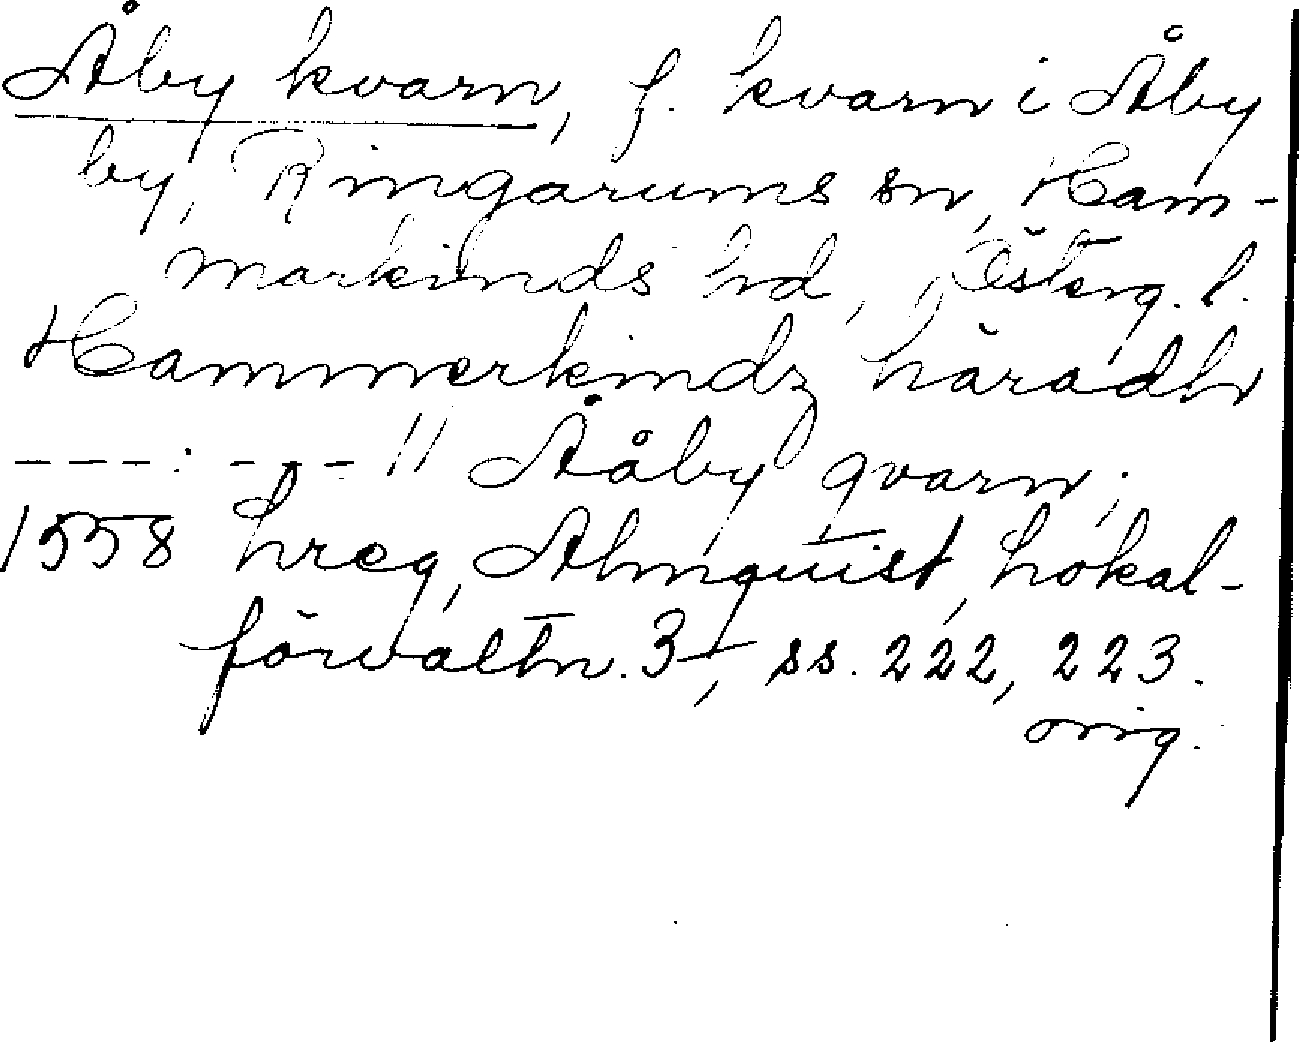 Åby kvarn, f. kvarn i Åby
by, Ringarums sn, Ham-
markinds hd, Österg. l.
Hammerkindz häradh
---:---// Ååby qvarn;
1558 hreg, Almquist, Lokal-
förvaltn. 3, ss. 222, 223.
orig.